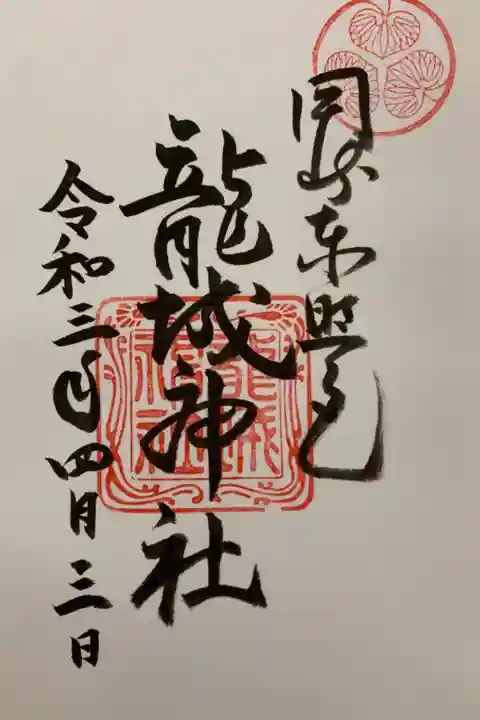 岡崎東照宮
龍城神社
令和三年四月三日